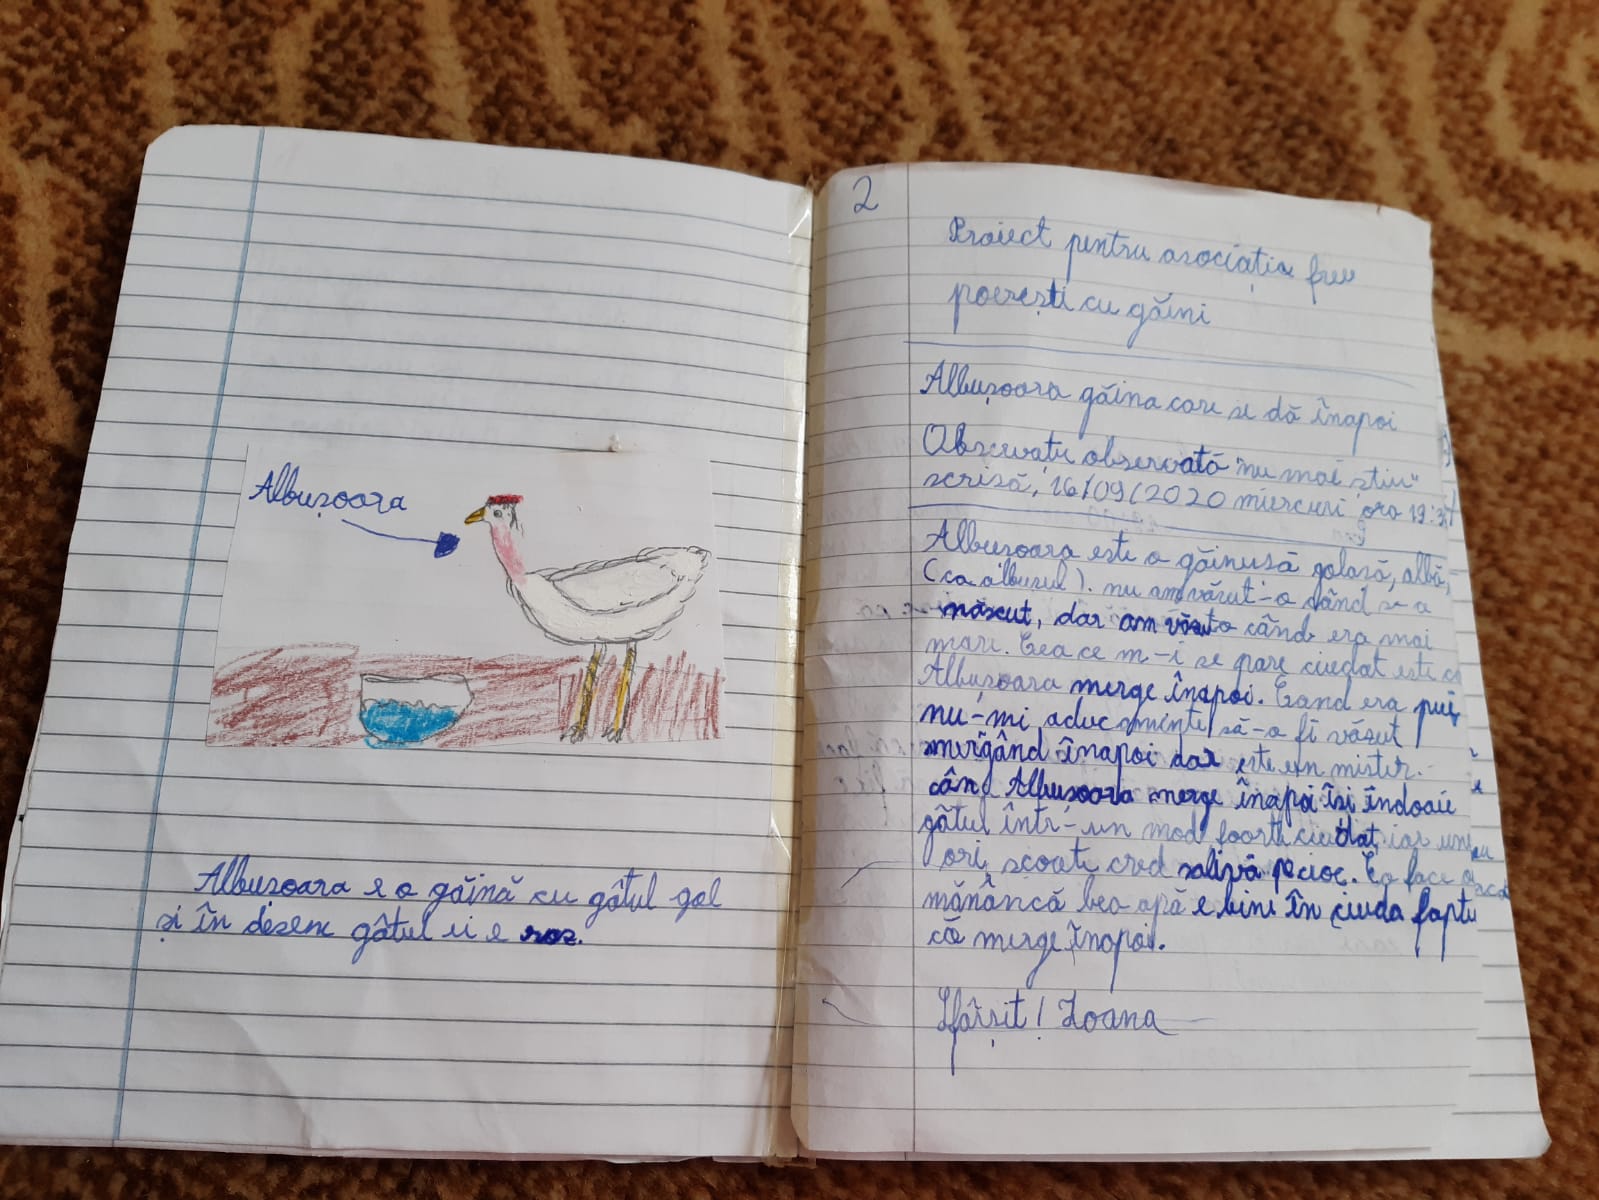 Albușoara
Albușoara e o găină cu gâtul gol
și în desen gâtul ei e roz.
2
Proiect pentru asociația free
poerești cu găini
Albușoara găina care se dă înapoi
Observație observată "nu mai știu"
scrisă, 16/09/2020 miercuri ora 19:37
Albușoara este o găinusă golasă, albă,
(ca albusul). nu am văzut-o când s-a
născut, dar am văzut-o când era mai
mare. Ceea ce m-i se pare ciudat este că
Albușoara merge înapoi. Cand era pui,
nu-mi aduc aminte să-o fi văzut
mergând înapoi dar este un mister.
când Albusoara merge înapoi își îndoaie
gâtul într-un mod foarte ciudat, iar une
ori, scoate cred salivă pe cioc. Ea face
mănâncă bea apă e bine în ciuda faptu
că merge înapoi.
Sfârșit! Ioana